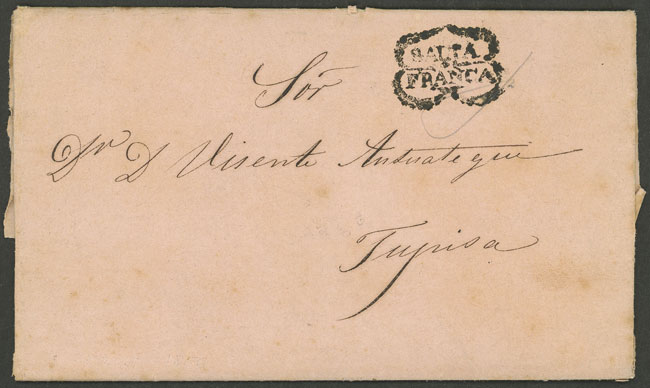 SALTA
FRANCA
Sor
Dr D Visente Anduategui
Tupisa